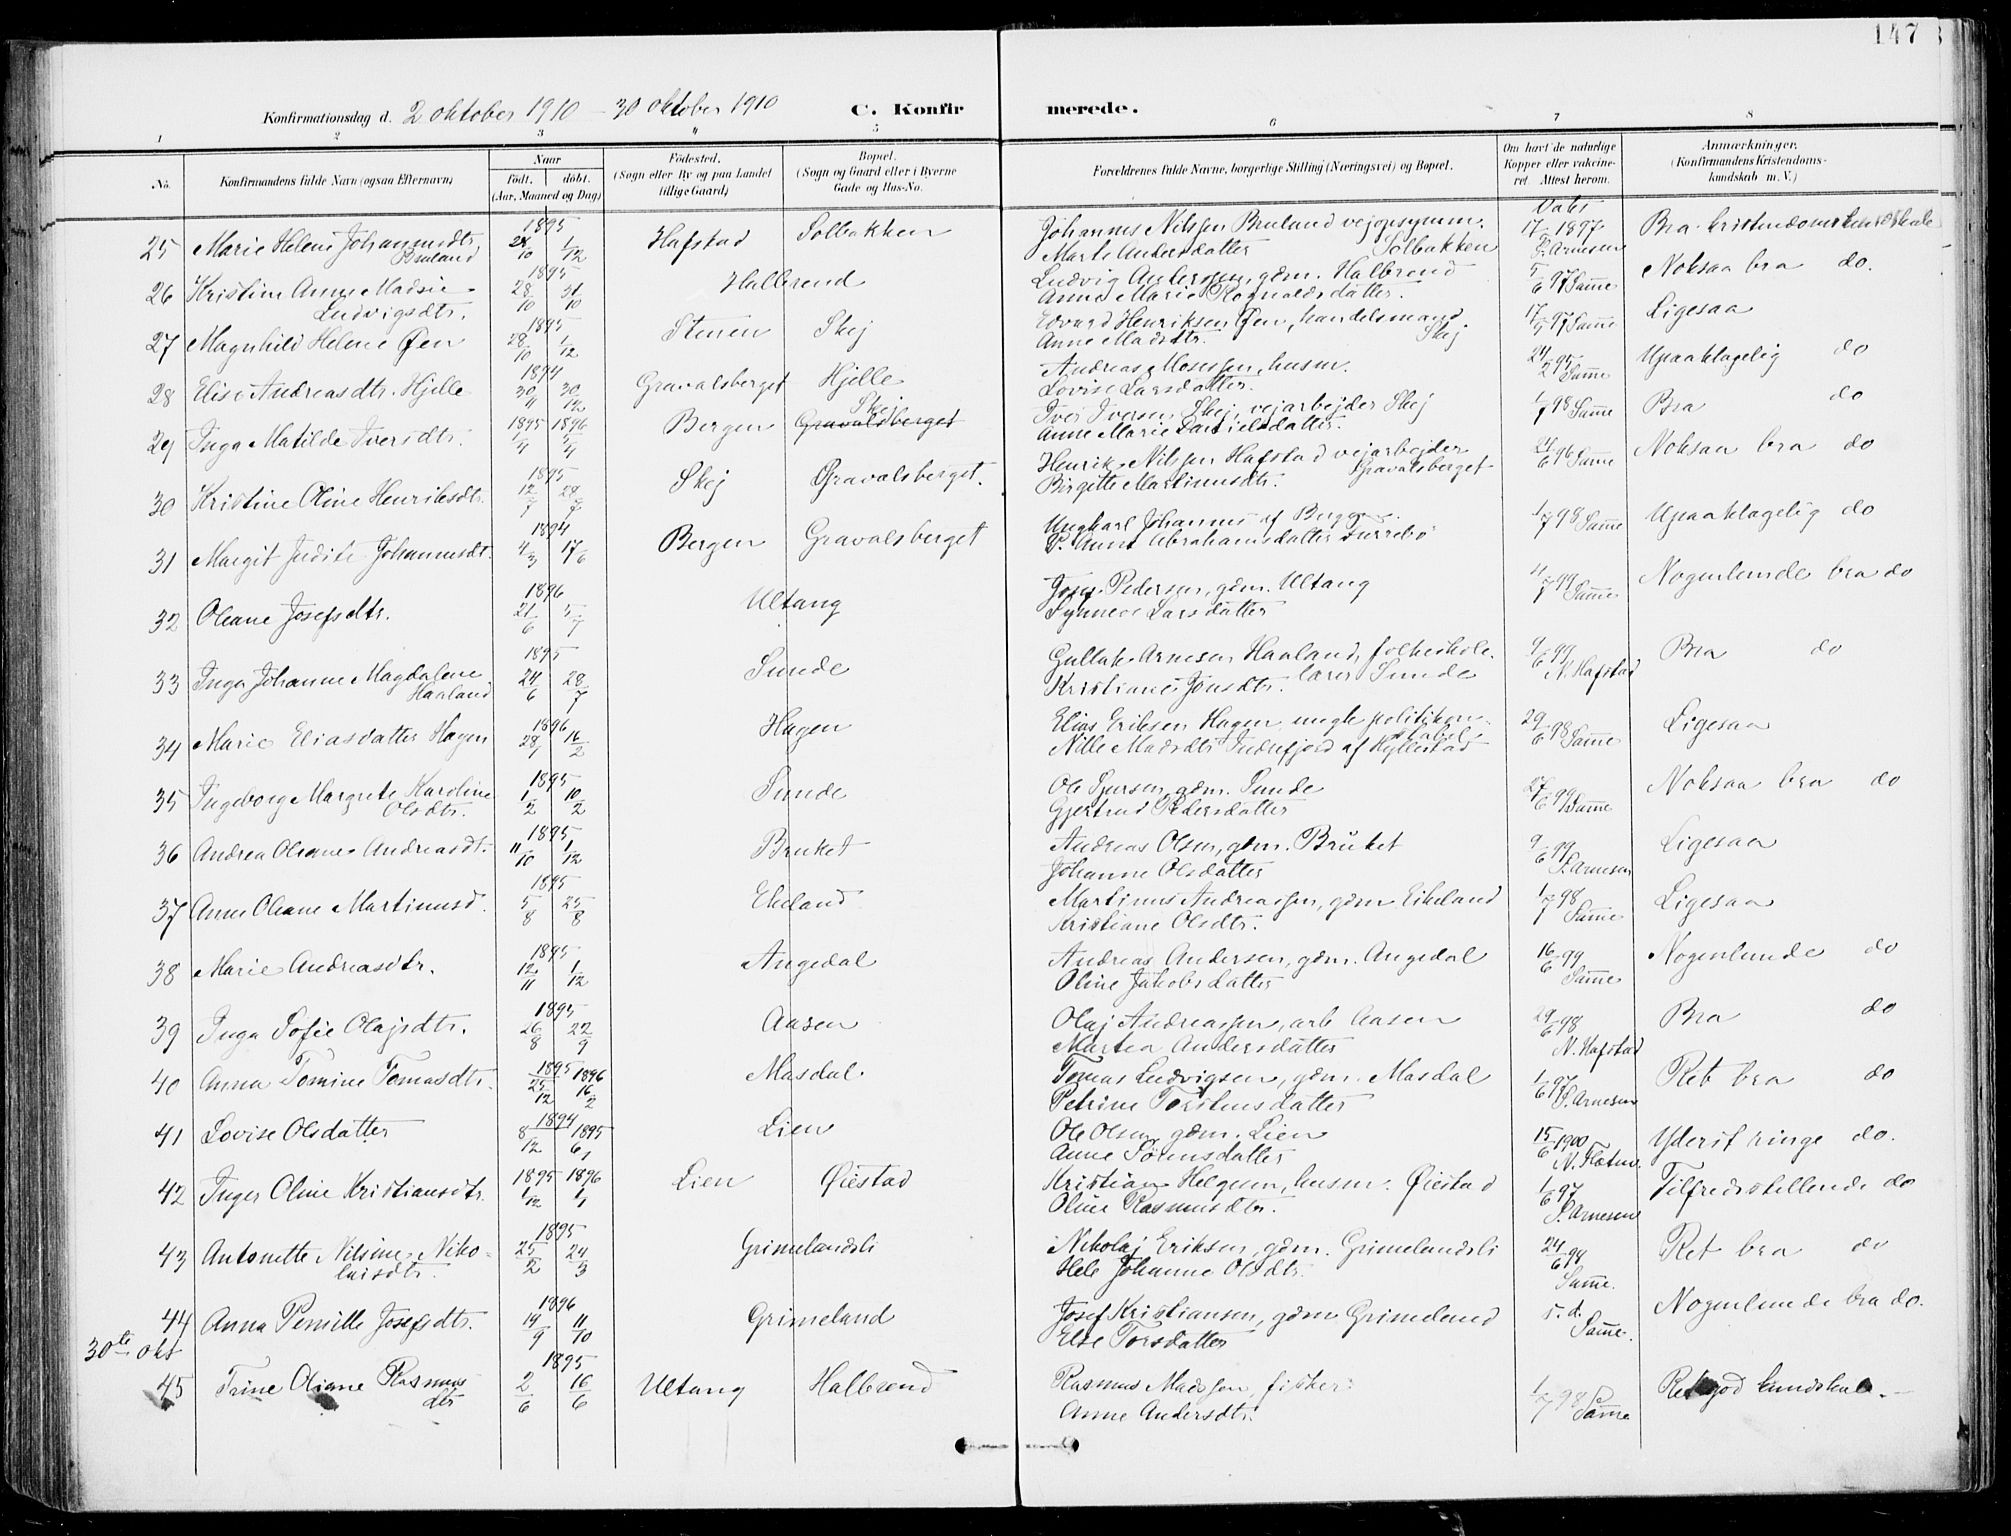 147
Konfirmationsdag d. 2 oktober 1910 – 30 oktober 1910 C. Konfirmerede.
1 2 3 4 5 6 7 8
No. Konfirmandens fulde Navn (ogsaa Efternavn) Naar Födt. döbt. (Aar, Maaned og Dag) Födested. (Sogn eller By og paa Landet tillige Gaard) Bopæl. (Sogn og Gaard eller i Byerne Gade og Hus-No. Forældrenes fulde Navne, borgerlige Stilling (Næringsvei) og Bopæl. Om havt de naturlige Kopper eller vakcineret. Attest herom. Anmærkninger. (Konfirmandens Kristendomskundskab m. V.)
25 Marie Helene Johannesdtr. Bruland 1895 28/10 1/12 Hafstad Solbakken Johannes Nilssen Bruland vejopsynsm. Solbakken
Marte Andersdatter 17/ 1897 P. Arnesen Bra kristendomskundskab
26 Kristine Anne Madsie Ludvigsdtr. 1895 28/10 31/10 Halbrend Ludvig Anderssen, gdm. Halbrend
Anne Marie Rognaldsdatter. 5/6 97 Samme Noksaa bra do.
27 Magnhild Helene Øen 1895 28/10 1/12 Stenen Skej Edvard Henriksen Øen, handelsmand Skej
Anne Madsdtr. 17/ 97 Samme Ligesaa
28 Elise Andreasdtr. Hjelle 1894 30/4 30/12 Gravalsberget Hjelle Andreas Mosessen, husm.
Lovise Larsdatter. 24/ 95 Samme Upaaklagelig do
29 Inga Matilde Iversdtr. 1895 1896 Bergen Skej Gravalsberget Iver Iversen Skej, vejarbejder Skej
Anne Marie Danielsdatter. 1/7 98 Samme Bra do
30 Kristine Oline Henriksdtr. 1895 12/7 28/7 Skej Gravalsberget. Henrik Nilssen Hafstad vejarbejder Gravalsberget
Birgitte Martinusdtr. 24/6 96 Samme Noksaa bra do
31 Margit Judite Johannesdt. 1894 4/3 17/6 Bergen Gravalsberget Ungkarl Johannes af Bergen.
P. Anne Abrahamsdatter Furrebø 1/7 98 Samme Upaaklagelig do
32 Oleane Josefsdtr. 1896 21/6 5/7 Ultang Josef Pedersen, gdm. Ultang
Synneve Larsdatter 4/7 99 Samme Nogenlunde bra do
33 Inga Johanne Magdalene Haaland 1895 24/6 28/7 Sunde Gullak Arnesen Haaland, folkeskolelærer Sunde
Kristiane Jonsdtr. 9/6 99 N. Hafstad Bra do
34 Marie Eliasdatter Hagen 1896 28/1 16/2 Hagen Elias Eriksen Hagen
Nille Madsdtr. af Hyllestad 29/6 98 Samme Ligesaa
35 Ingeborg Margrete Karoline Olsdtr. 1895 1/2 10/2 Sunde Ole Sjursen, gdm. Sunde
Gjertrud Pedersdatter 27/6 99 Samme Noksaa bra do
36 Andrea Oleane Andreasdt. 1895 11/10 1/12 Bruket Andreas Olsen, gdm. Bruket
Johanne Olsdatter 9/6 99 P. Arnesen Ligesaa
37 Anne Oleane Martinusd. 1895 5/8 25/8 Ekeland Martinus Andreassen, gdm Eikeland
Kristiane Olsdtr. 1/7 98 Samme Ligesaa
38 Marie Andreasdtr. 1895 12/11 1/12 Angedal Andreas Andersen, gdm. Angedal
Oline Jakobsdatter 16/6 99 Samme Nogenlunde do
39 Inga Sofie Olajsdtr. 1895 26/8 22/9 Aasen Olaj Andreassen, arb Aasen
Martea Andersdatter 29/6 98 N. Hafstad Bra do
40 Anna Tomine Tomasdtr. 1895 25/12 1896 16/2 Masdal. Tomas Ludvigsen, gdm. Masdal
Petrine Torstensdatter 1/6 97 P. Arnesen Ret bra do
41 Lovise Olsdatter 1894 8/12 1895 6/1 Lien Ole Olsen gdm. Lien
Anne Sörensdatter 15/6 1900 Yderst ringe do.
42 Inger Oline Kristiansdtr. 1895 1/12 1896 1/1 Lien Øiestad Kristian Helgesen, husm. Øiestad
Oline Rasmusdtr. 1/6 97 P. Arnesen Tilfredsstillende do
43 Antonette Nilsine Nikolaisdtr. 1895 25/2 24/3 Grimelandsli Nikolaj Eriksen, gdm. Grimelandsli
Hele Johanne Olsdtr. 24/6 98 Samme. Ret bra do
44 Anna Pernille Josefsdtr. 1896 19/9 11/10 Grimeland Josef Kristiansen, gdm Grimeland
Else Torsdatter s. d. Samme. Nogenlunde bra do.
30te okt
45 Trine Oliane Rasmusdtr 1895 2/6 16/6 Ultang Halbrend Rasmus Madssen, fisker.
Anne Andersdtr. 1/7 98 Samme Ret god kundskab.